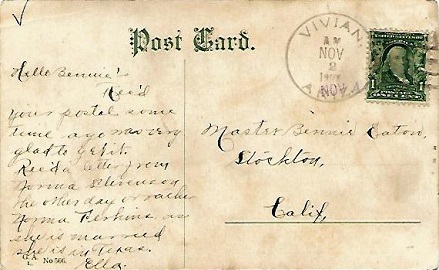 Post Card.
VIVIAN,
AM
NOV
2
NOV
1
Hello Bennie!
Rec'd
your postal some
time ago was very
glad to get it.
Rec'd a letter from
Norma Stevenson
the other day or rather
Norma Perkins, as
she is married
she is in Texas.
Ella.
Master Bennie Eaton,
Stockton,
Calif,
G. A.
No 566.